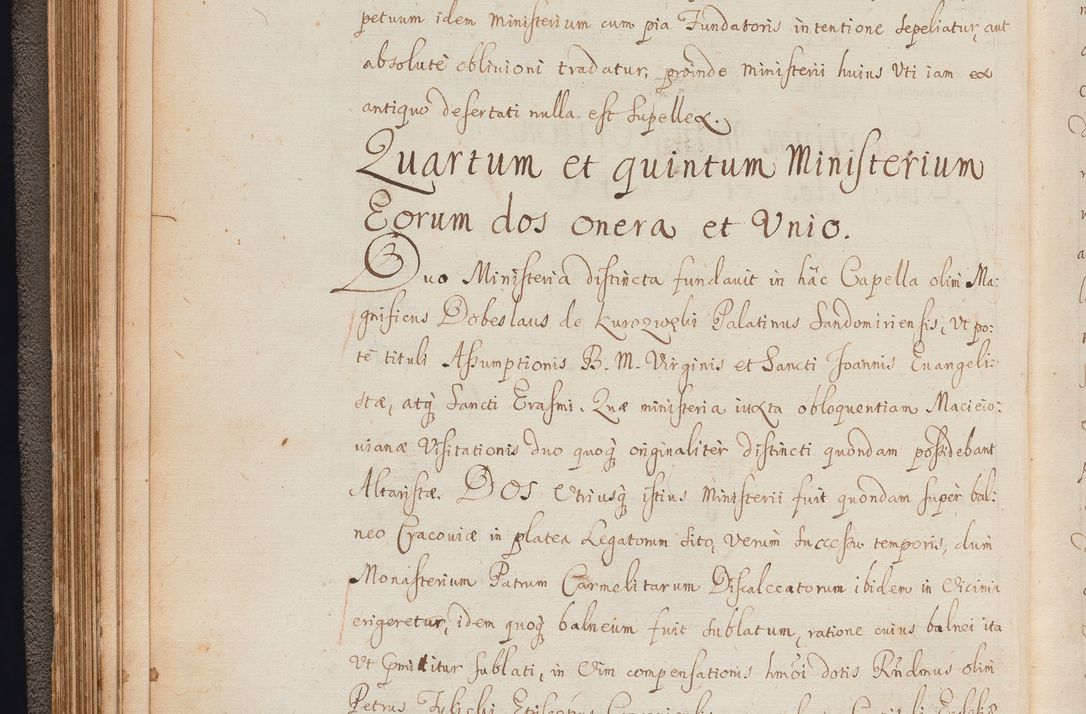 petuum idem Ministerium cum pia Fundatoris intentione sepeliatur, aut
absolutè obliuioni tradatur, proinde Ministerii huius vti iam ex
antiquo desertati nulla est supellex.
Quartum et quintum Ministerium
Eorum dos onera et Vnio.
Duo Ministeria distincta fundauit in hac Capella olim Ma:
gnificus Dobeslaus de Kurozwęki Palatinus Sandomiriensis, vt po:
te tituli Assumptionis B. M. Virginis et Sancti Joannis Euangeli:
stæ, atq Sancti Erasmi. Quæ ministeria iuxta obloquentiam Macieio:
uianæ Visitationis duo quoq originaliter distincti quondam possidebant
Altaristæ. Dos Vtriusq istius Ministerii fuit quondam super bal:
neo Cracoviæ in platea Legatorum sito, verum successu temporis, dum
Monasterium Patrum Carmelitarum Discalceatorum ibidem in vicinia
erigeretur, idem quoq balneum fuit sublatum, ratione cuius balnei ita
vt sublati, in vim compensationis hmoi dotis Rndmus olim
Petrus